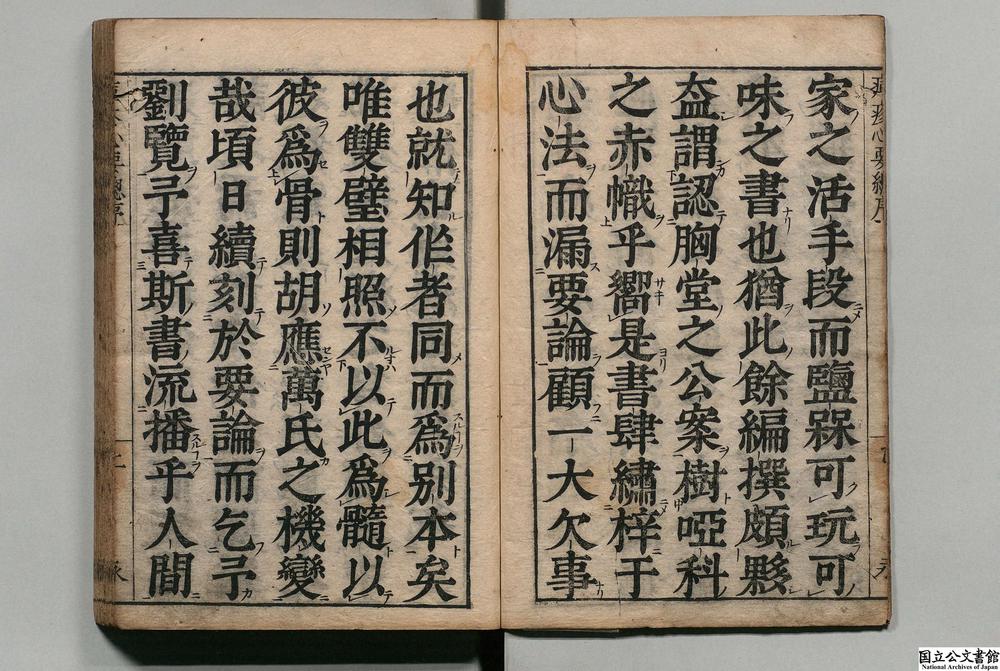 家之活手段而鹽槑可玩可
味之書也猶此餘編撰頗夥
葢謂認胸堂之公案樹啞科
之赤幟乎嚮是書肆繡梓于
心法而漏要論顧一大欠事
也就知作者同而爲別本矣
唯雙璧相照不以此爲髓以
彼爲骨則胡應萬氏之機變
哉頃日續刻於要論而乞予
劉覽予喜斯書流播乎人間
国立公文書館
National Archives of Japan